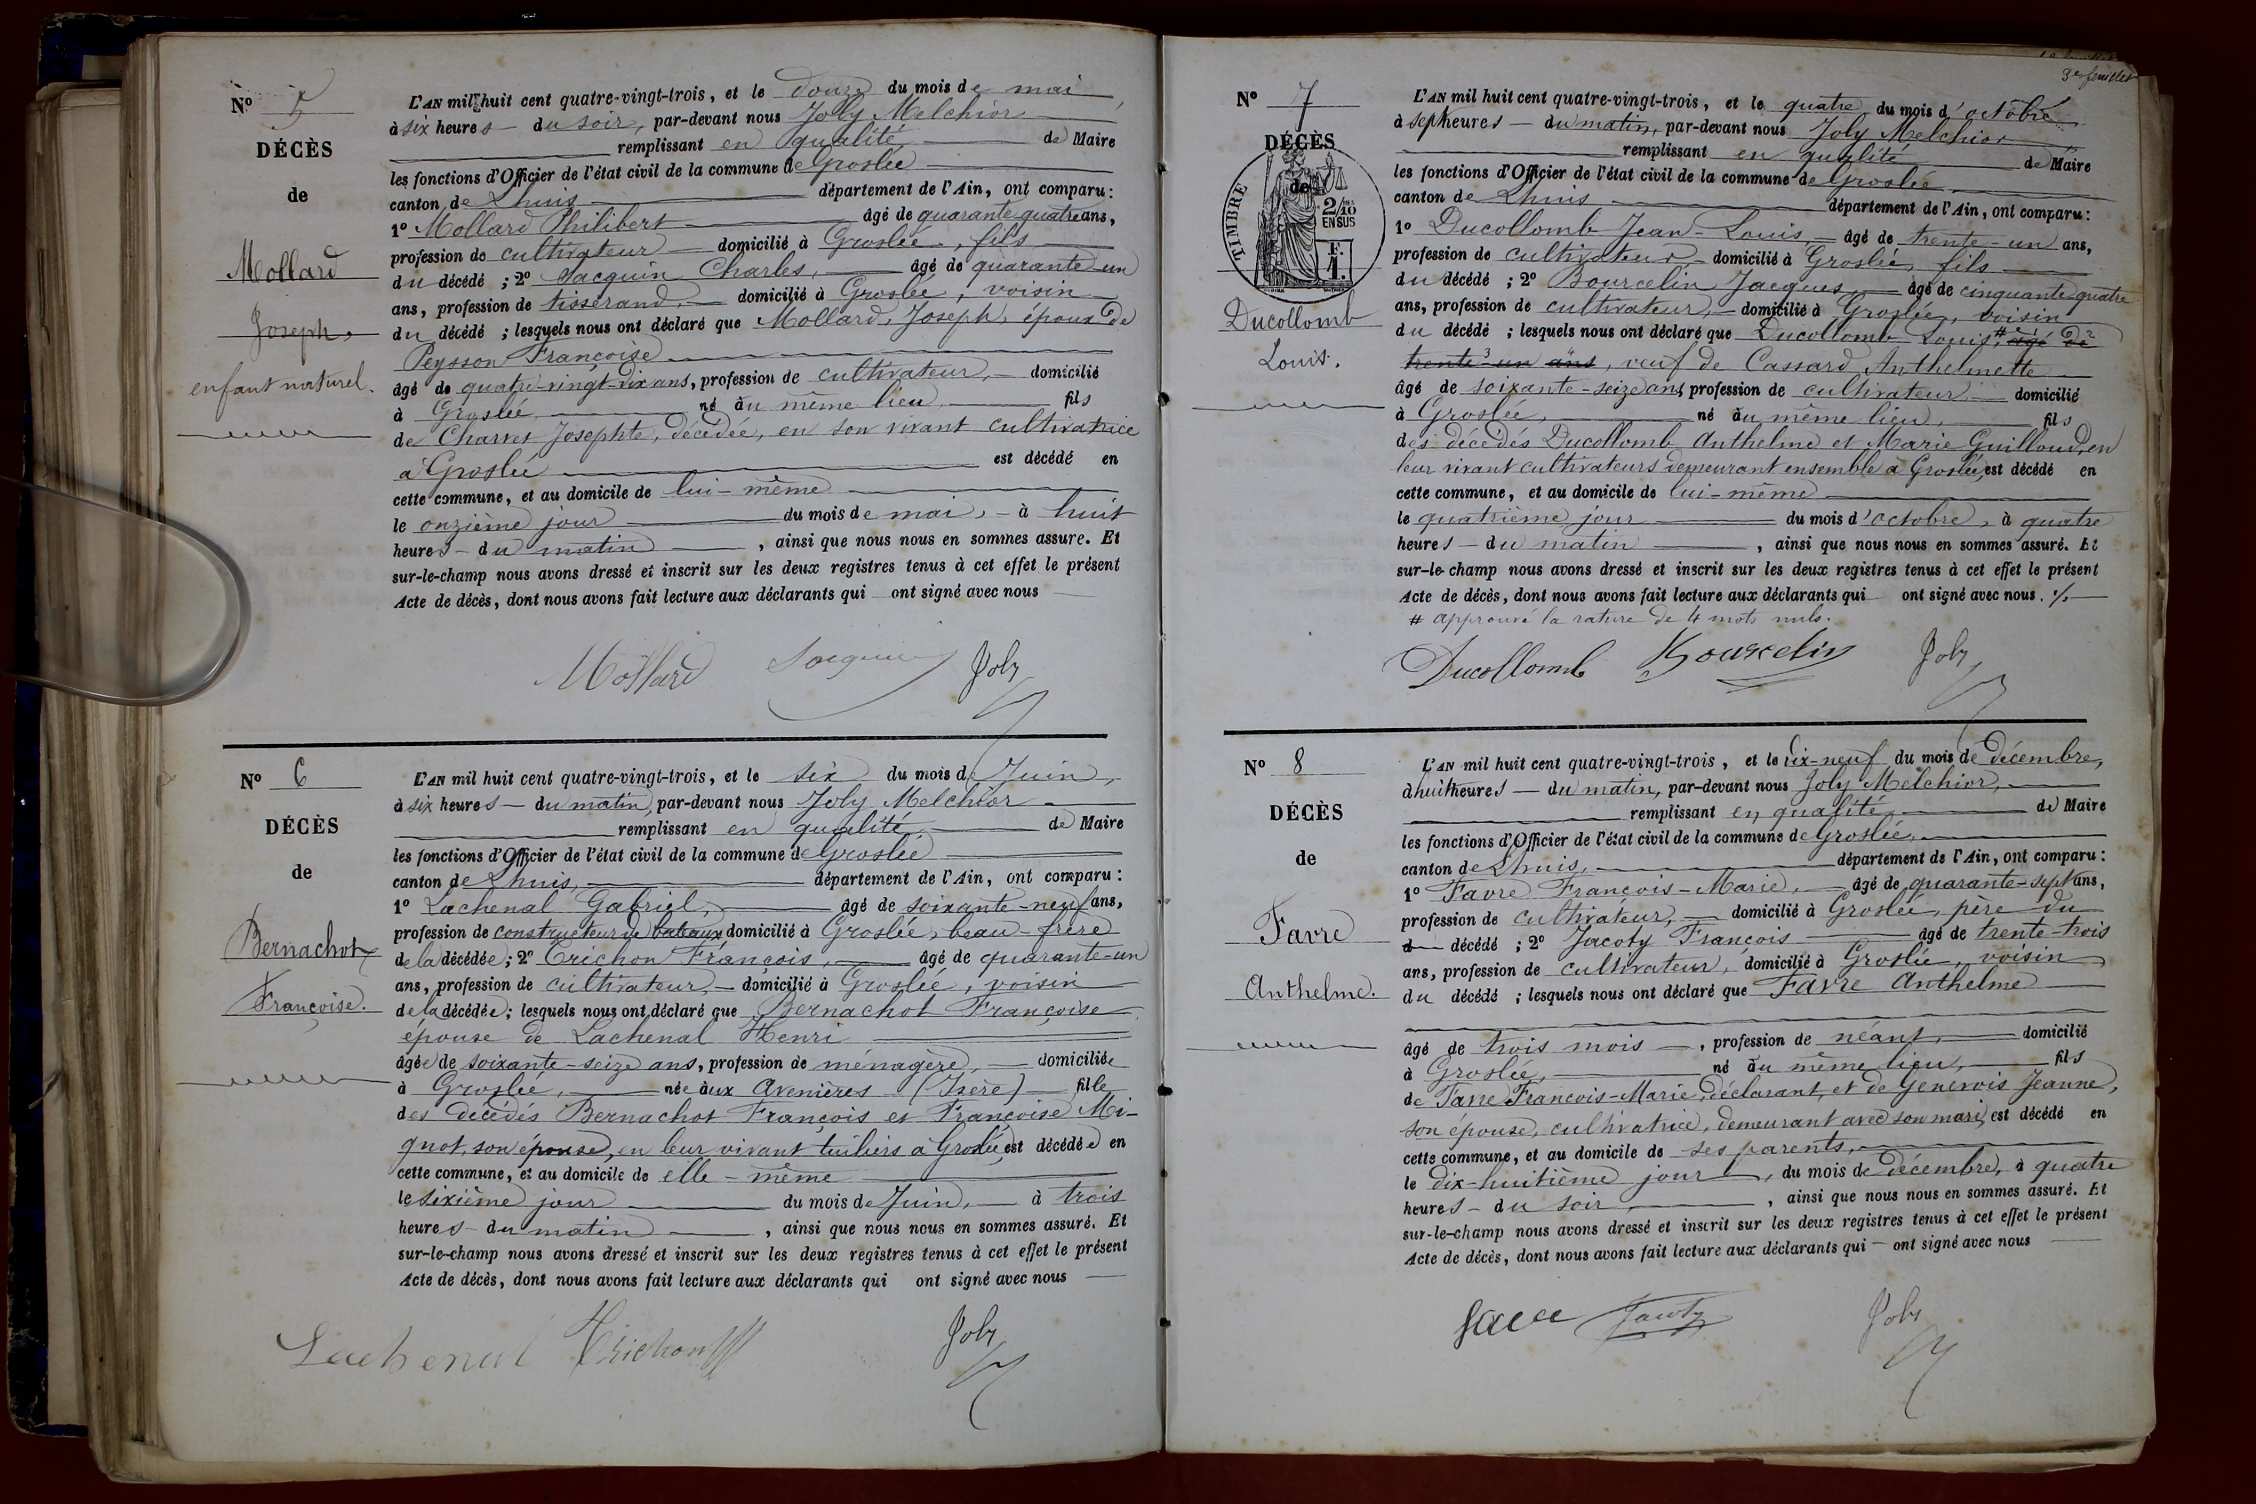 Nº 5
DÉCÈS
de
Mollard
Joseph,
enfant naturel.
L'AN mil huit cent quatre-vingt-trois, et le douze du mois de mai
à six heures du soir, par-devant nous Joly Melchior
remplissant en qualité de Maire
les fonctions d'Officier de l'état civil de la commune de Groslée
canton de Lhuis département de l'Ain, ont comparu :
1º Mollard Philibert âgé de quarante quatre ans,
profession de cultivateur domicilié à Groslée, fils
du décédé ; 2º Jacquin Charles, âgé de quarante-un
ans, profession de tisserand, domicilié à Groslée, voisin
du décédé ; lesquels nous ont déclaré que Mollard, Joseph, époux de
Peysson Françoise
âgé de quatre-vingt-dix ans, profession de cultivateur, domicilié
à Groslée, né au même lieu, fils
de Charvet Josephte, décédée, en son vivant cultivatrice
à Groslée est décédé en
cette commune, et au domicile de lui-même
le onzième jour du mois de mai, à huit
heures du matin, ainsi que nous nous en sommes assuré. Et
sur-le-champ nous avons dressé et inscrit sur les deux registres tenus à cet effet le présent
Acte de décès, dont nous avons fait lecture aux déclarants qui ont signé avec nous
Mollard Jacquin Joly
Nº 6
DÉCÈS
de
Bernachot
Françoise.
L'AN mil huit cent quatre-vingt-trois, et le six du mois de Juin,
à six heures du matin, par-devant nous Joly Melchior
remplissant en qualité de Maire
les fonctions d'Officier de l'état civil de la commune de Groslée
canton de Lhuis, département de l'Ain, ont comparu :
1º Lachenal Gabriel, âgé de soixante-neuf ans,
profession de constructeur de bateaux domicilié à Groslée, beau-frère
de la décédée ; 2º Trichon François, âgé de quarante-un
ans, profession de cultivateur, domicilié à Groslée, voisin
de la décédée ; lesquels nous ont déclaré que Bernachot Françoise
épouse de Lachenal Henri
âgée de soixante-seize ans, profession de ménagère, domiciliée
à Groslée, née aux Avenières (Isère) fille
des décédés Bernachot François et Françoise Mi-
gnot, son épouse, en leur vivant tuiliers à Groslée est décédée en
cette commune, et au domicile de elle-même
le sixième jour du mois de Juin, à trois
heures du matin, ainsi que nous nous en sommes assuré. Et
sur-le-champ nous avons dressé et inscrit sur les deux registres tenus à cet effet le présent
Acte de décès, dont nous avons fait lecture aux déclarants qui ont signé avec nous
Lachenal Trichon Joly
3e feuillet
Nº 7
DÉCÈS
de
TIMBRE
2/10
EN SUS
F.
1.
Ducollomb
Louis.
L'AN mil huit cent quatre-vingt-trois, et le quatre du mois d'octobre
à sept heures du matin, par-devant nous Joly Melchior
remplissant en qualité de Maire
les fonctions d'Officier de l'état civil de la commune de Groslée
canton de Lhuis département de l'Ain, ont comparu :
1º Ducollomb Jean-Louis, âgé de trente-un ans,
profession de cultivateur, domicilié à Groslée, fils
du décédé ; 2º Bourcelin Jacques, âgé de cinquante-quatre
ans, profession de cultivateur, domicilié à Groslée, voisin
du décédé ; lesquels nous ont déclaré que Ducollomb Louis, # âgé de
trente-un ans, veuf de Cassard Anthelmette
âgé de soixante-seize ans, profession de cultivateur domicilié
à Groslée, né au même lieu, fils
des décédés Ducollomb Anthelme et Marie Guilloud, en
leur vivant cultivateurs demeurant ensemble à Groslée, est décédé en
cette commune, et au domicile de lui-même
le quatrième jour du mois d'octobre, à quatre
heures du matin, ainsi que nous nous en sommes assuré. Et
sur-le-champ nous avons dressé et inscrit sur les deux registres tenus à cet effet le présent
Acte de décès, dont nous avons fait lecture aux déclarants qui ont signé avec nous.
# approuvé la rature de 4 mots nuls.
Ducollomb Bourcelin Joly
Nº 8
DÉCÈS
de
Favre
Anthelme.
L'AN mil huit cent quatre-vingt-trois, et le dix-neuf du mois de décembre,
à huit heures du matin, par-devant nous Joly Melchior,
remplissant en qualité de Maire
les fonctions d'Officier de l'état civil de la commune de Groslée,
canton de Lhuis, département de l'Ain, ont comparu :
1º Favre François-Marie, âgé de quarante-sept ans,
profession de cultivateur, domicilié à Groslée, père du
décédé ; 2º Jacoty François âgé de trente-trois
ans, profession de cultivateur, domicilié à Groslée, voisin
du décédé ; lesquels nous ont déclaré que Favre Anthelme
âgé de trois mois, profession de néant, domicilié
à Groslée, né au même lieu, fils
de Favre François-Marie, déclarant, et de Genevois Jeanne,
son épouse, cultivatrice, demeurant avec son mari, est décédé en
cette commune, et au domicile de ses parents,
le dix-huitième jour, du mois de décembre, à quatre
heures du soir, ainsi que nous nous en sommes assuré. Et
sur-le-champ nous avons dressé et inscrit sur les deux registres tenus à cet effet le présent
Acte de décès, dont nous avons fait lecture aux déclarants qui ont signé avec nous
Favre Jacoty Joly